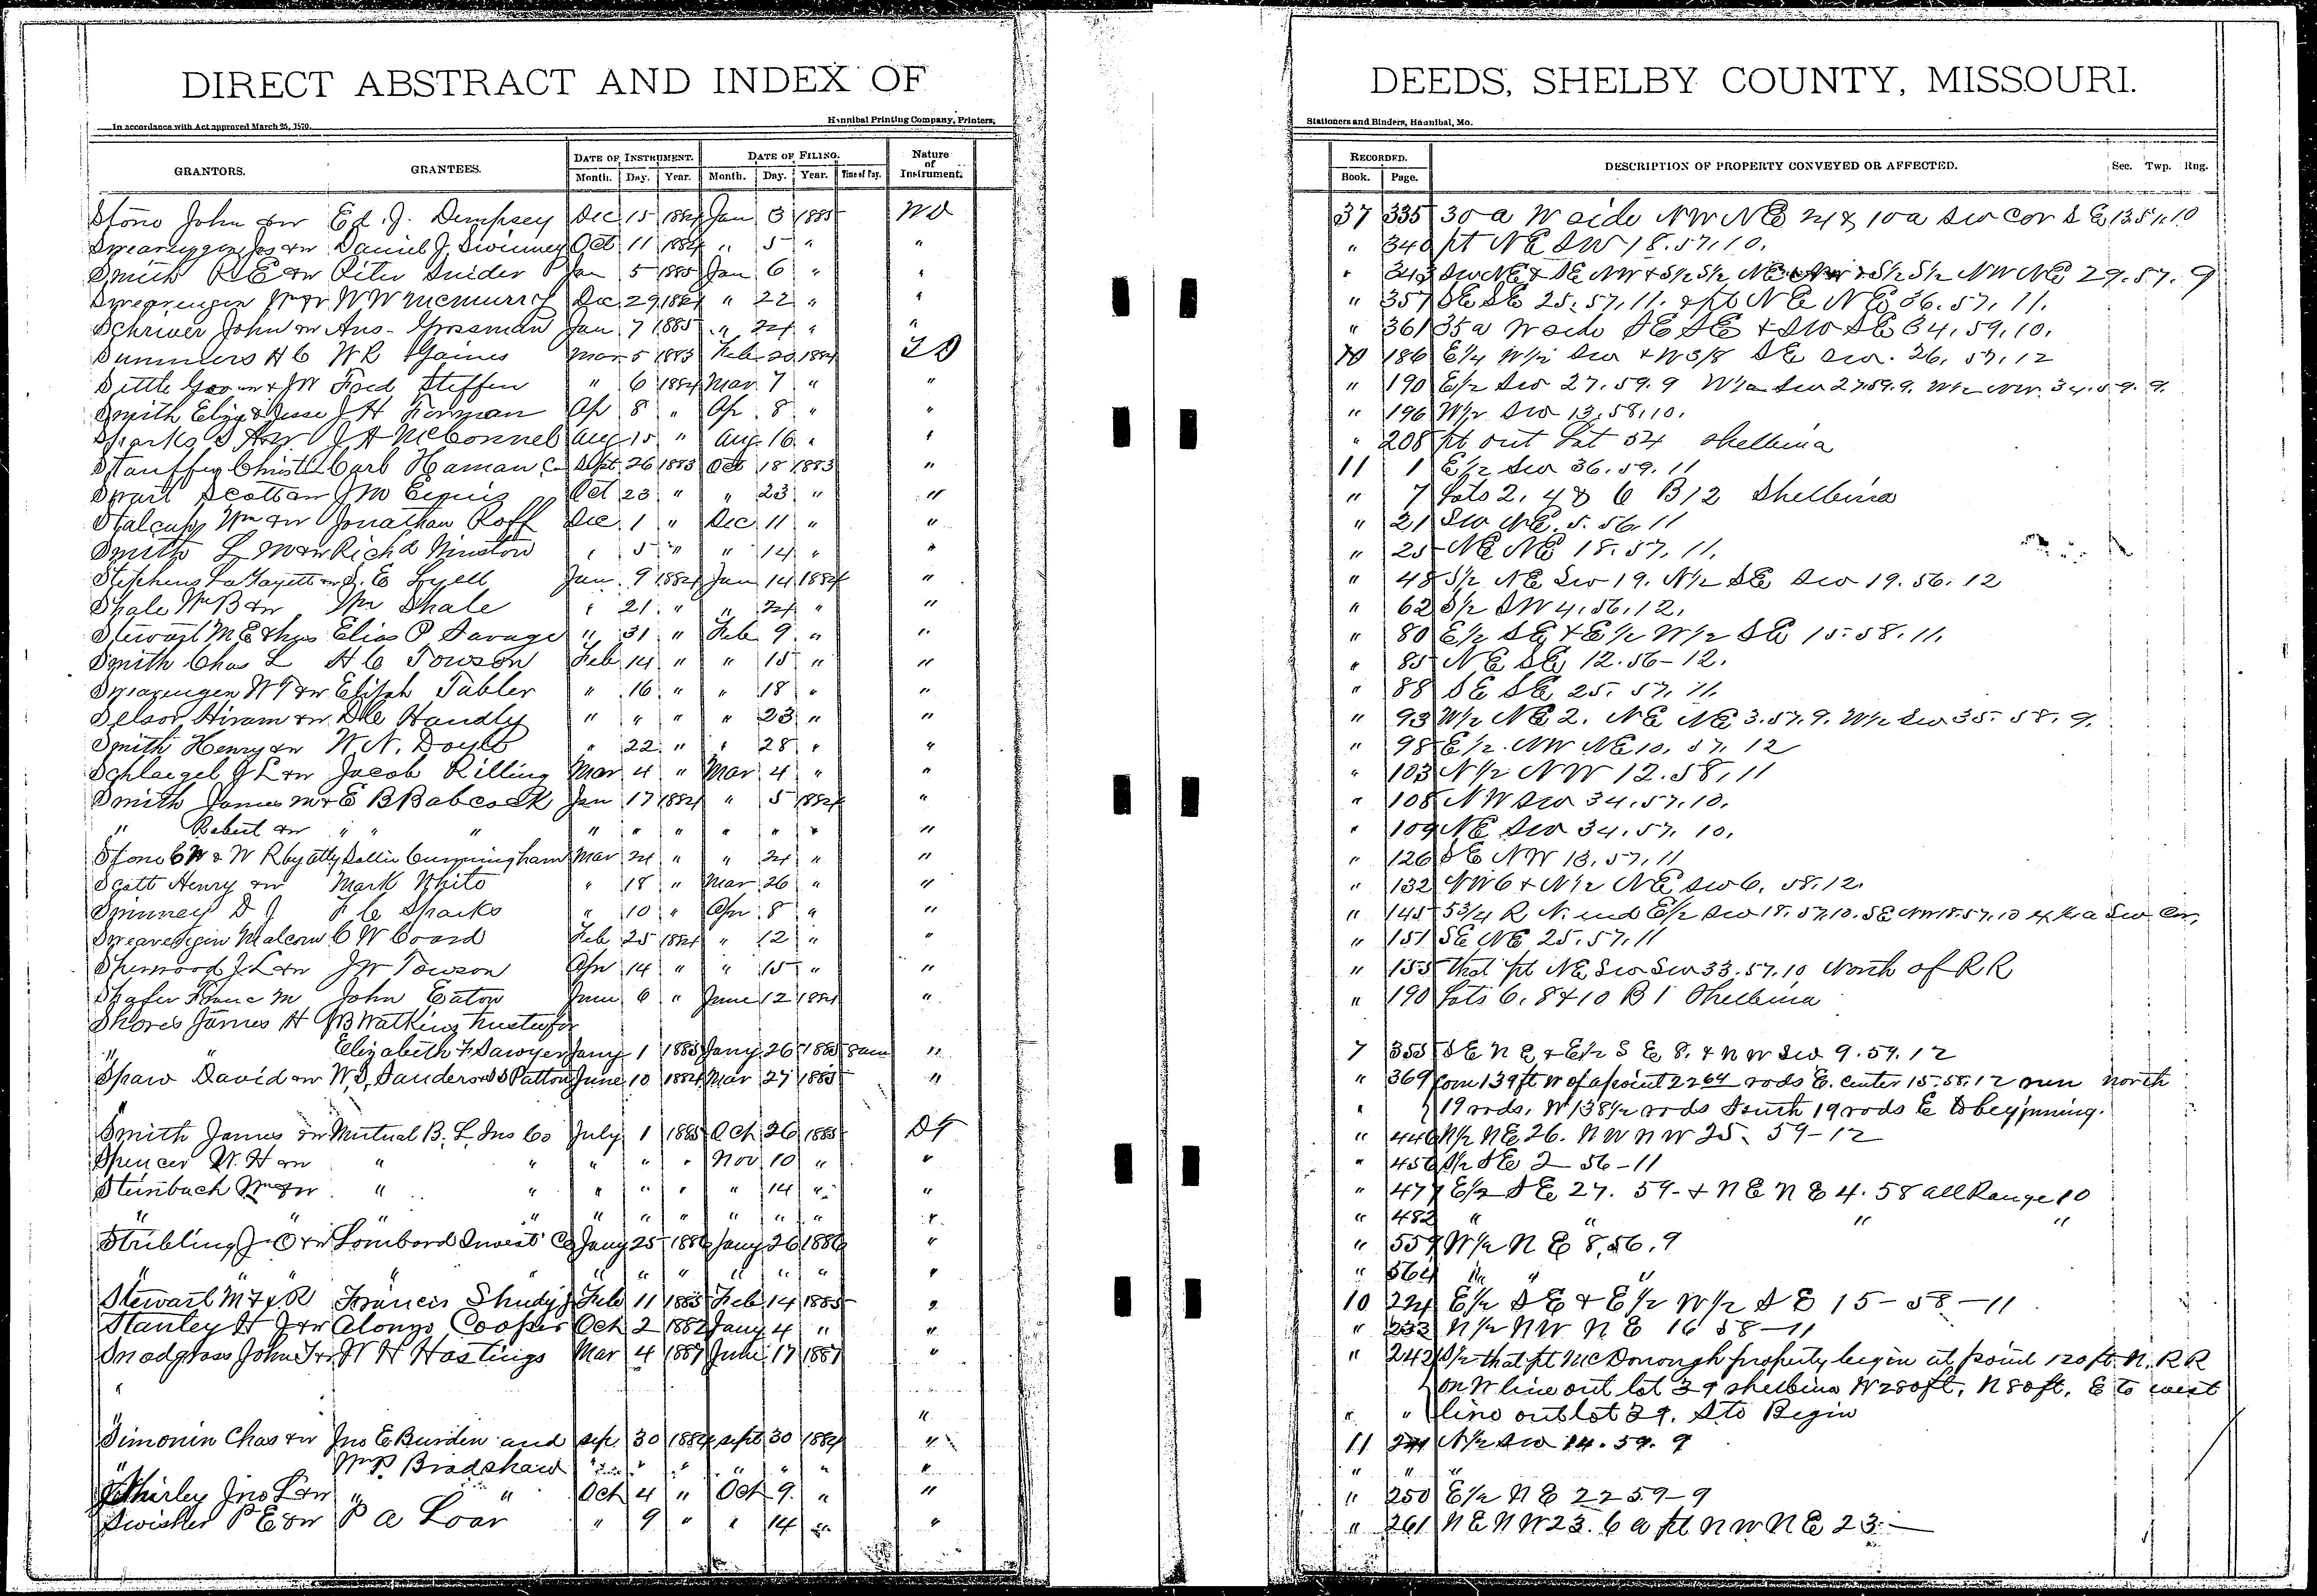 DIRECT ABSTRACT AND INDEX OF DEEDS, SHELBY COUNTY, MISSOURI.
In accordance with Act approved March 25, 1870. Hannibal Printing Company, Printers, Stationers and Binders, Hannibal, Mo.
GRANTORS. GRANTEES. DATE OF INSTRUMENT. DATE OF FILING. Nature of Instrument. RECORDED. DESCRIPTION OF PROPERTY CONVEYED OR AFFECTED. Sec. Twp. Rng.
Month. Day. Year. Month. Day. Year. Time of Day. Book. Page.
Stone John &w Ed. J. Dempsey Dec 15 1884 Jan 3 1885 WD 37 335 30 a W side NW NE 24 & 10 a Sw Cor SE 13 57.10
Daniel J. Swinney Oct 11 1884 " 5 " " " 340 pt NE SW 18.57.10.
Smith R E &w Peter Snider Jan 5 1885 Jan 6 " " " 343 Sw NE & SE NW & S1/2 S1/2 NE & S1/2 S1/2 NW NE 29.57.9
Swearengen Wm &w W W McMurry Dec 29 1884 " 22 " " " 357 SE SE 25.57.11. & pt NE NE 36.57.11.
Schriver John &w Aus- Grossman Jan 7 1885 " 24 " " " 361 35 a W side SE SE & SW SE 34.59.10.
Summers H C W R Gaines Mar 5 1883 Feb 20 1884 10 186 E1/4 W1/2 Sw & W3/8 SE Sw. 26.57.12
Settle Geo &w & JW Fred Steffen " 6 1884 Mar 7 " " " 190 E1/2 Sw 27.59.9 W1/2 Sw 27.59.9. W1/2 NW. 34.59.9.
Smith Eliza & Jesse J H Forman Ap 8 " Ap. 8 " " " 196 W1/2 Sw 13.58.10.
Sparks S A &w J A McConnel Aug 15 " Aug 16 " " " 208 pt out Lot 54 Shelbina
Stauffer Christ Carl Haman Sept 26 1883 Oct 18 1883 " 11 1 E1/2 Sw 36.59.11
Swart Scott &w J M Ennis Oct 23 " " 23 " " " 7 Lots 2, 4 & 6 B12 Shelbina
Stalcup Wm &w Jonathan Roff Dec 1 " Dec 11 " " " 21 SW NE. 5.56.11
Smith L M &w Rich d Winston " 5 " " 14 " " " 25 NE NE 18.57.11.
Stephens LaFayette &w S. E Lyell Jan. 9 1884 Jan 14 1884 " " 48 S1/2 NE Sw 19. N1/2 SE Sw 19.56.12
Shale Wm B &w Wm Shale " 21 " " 24 " " " 62 S1/2 SW 4.56.12.
Stewart M E & hus Elias P Savage " 31 " Feb 9 " " " 80 E1/2 SE & E1/2 W1/2 SE 15.58.11.
Smith Chas L H C Towson Feb 14 " " 15 " " " 85 NE SE 12.56-12.
Swearengen W T &w Elijah Tabler " 16 " " 18 " " " 88 SE SE 25.57.11.
Selsor Hiram &w Handly " " " " 23 " " " 93 W1/2 NE 2. NE NE 3.57.9. W1/2 Sw 35.58.9.
Smith Henry &w W. N. Doyle " 22 " " 28 " " " 98 E1/2 NW NE 10.57.12
Schlaegel G L &w Jacob Rilling Mar 4 " Mar 4 " " " 103 N1/2 NW 12.58.11
Smith James M & E B Babcock Jan 17 1884 " 5 1884 " " 108 NW Sw 34.57.10.
" Robert &w " " " " " " " " " " " 109 NE Sw 34.57.10.
Stone C W & W R by atty Sallie Cunningham Mar 24 " " 24 " " " 126 SE NW 13.57.11
Scott Henry &w Mark White " 18 " Mar 26 " " " 132 NW 6 & N1/2 NE Sw 6. 58.12.
Swinney D J F C Sparks " 10 " Apr 8 " " " 145 53/4 R N. end E1/2 Sw 18.57.10. SE NW 18.57.10 a Sw Cor,
Malcom C W Coard Feb 25 1884 " 12 " " " 151 SE NE 25.57.11
Sherwood J L &w J W Towson Apr 14 " " 15 " " " 155 that pt NE Sw Sw 33.57.10 North of RR
Shafer Franc M John Eaton June 6 " June 12 1884 " " 190 Lots 6, 8 & 10 B 1 Shelbina
Shores James H J B Watkins trustee for
" " Elizabeth F Sawyer Jany 1 1885 Jany 26 1885 8am " 7 355 SE NE & E1/2 SE 8. & NW Sw 9.59.12
Spaw David &w W. S. Sanders & S Patton June 10 1884 Mar 27 1885 " " 369 Com 139 ft W of a point 22 64 rods E. center 15.58.12 run north
" " 19 rods, W 138 1/2 rods South 19 rods E to beginning.
Smith James &w Mutual B. L. Ins Co July 1 1885 Oct 26 1885 DT " 446 N1/2 NE 26. NW NW 25. 59-12
Spencer W. H &w " " " " " Nov 10 " " " 456 S1/2 SE 2-56-11
Steinbach Wm &w " " " " " " 14 " " " 477 E1/2 SE 27. 59- & NE NE 4. 58 all Range 10
" " " " " " " " " " " 482 " " " "
Stribling J O &w Lombard Invest Co Jany 25 1886 Jany 26 1886 " " 559 W1/2 NE 8.56.9
" " " " " " " " " " " " 564 " " "
Stewart M F & R Francis Shudy Feb 11 1885 Feb 14 1885 " 10 224 E1/2 SE & E1/2 W1/2 SE 15-58-11
Stanley H J &w Alonzo Cooper Oct 2 1882 Jany 4 " " " 233 N1/2 NW NE 16 58-11
Snodgrass John T &w W H Hastings Mar 4 1887 June 17 1887 " " 242 S1/2 that pt McDonough property begin at point 120 ft. N. RR
" on W line out lot 39 Shelbina W 280 ft, N 80 ft, E to west
" " " " line out lot 39. S to Begin
Simonin Chas &w Jno E Burden and Sep. 30 1884 Sept 30 1884 " 11 241 N1/2 Sw 14.59.9
" Wm P Bradshaw " " " " " " " " " "
Shirley Jno L &w " " Oct 4 " Oct 9 " " " 250 E1/2 NE 22 59-9
Swisher P E &w P A Loar " 9 " " 14 " " " 261 NE NW 23. 6 a pt NW NE 23-